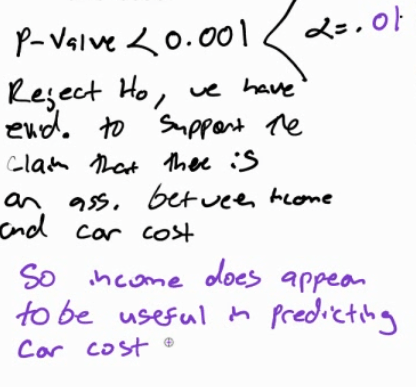 P-Value < 0.001 < α = .01
Reject Ho, we have
evid. to support the
claim that there is
an ass. between income
and car cost
So income does appear
to be useful in predicting
car cost